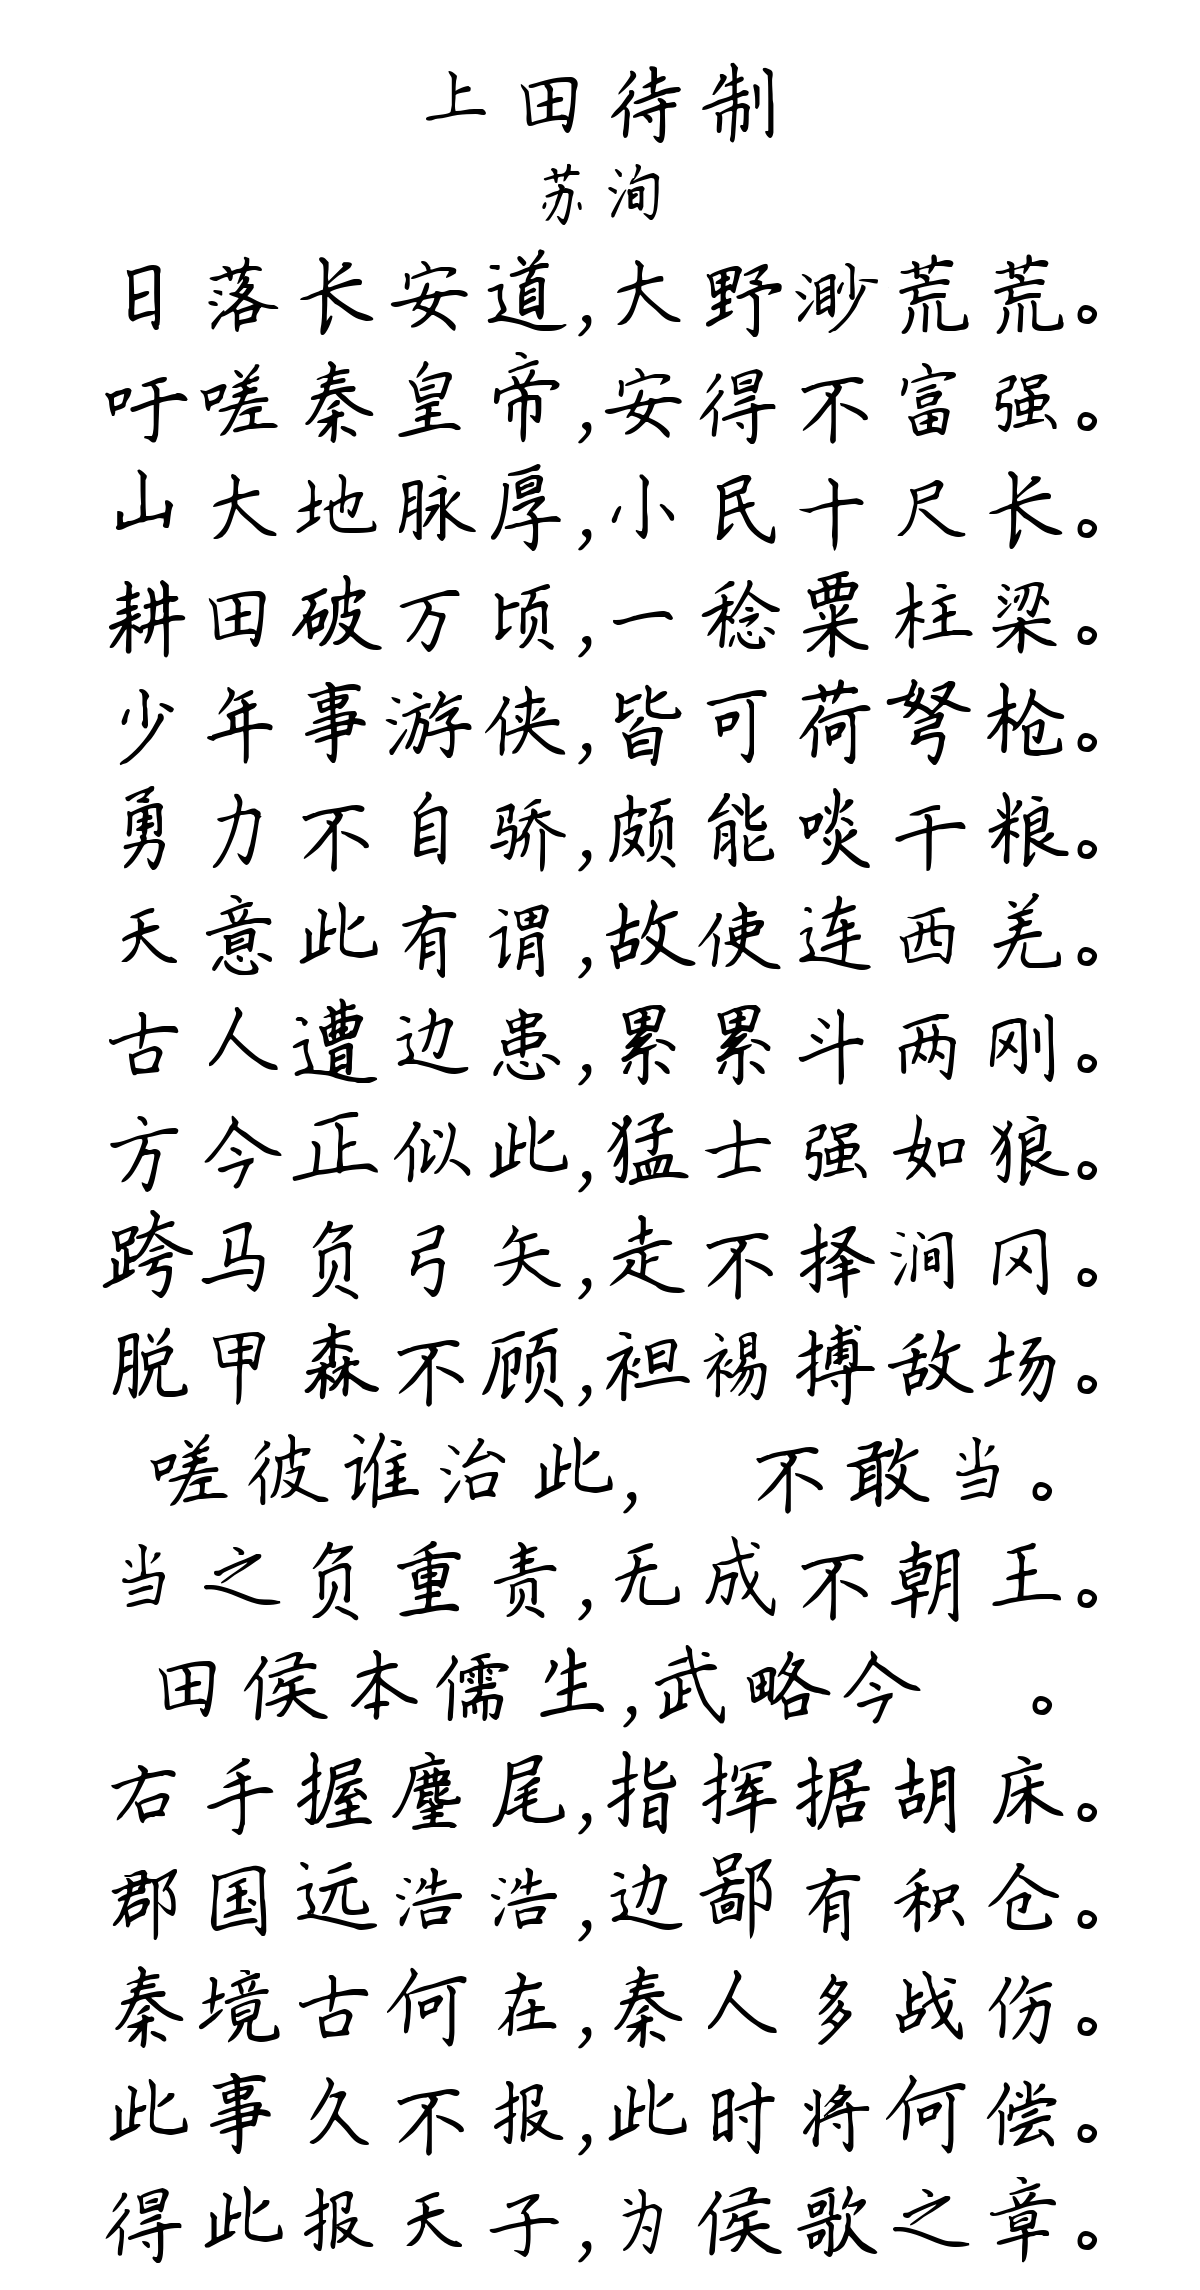 上田待制
苏洵
日落长安道,大野渺荒荒。
吁嗟秦皇帝,安得不富强。
山大地脉厚,小民十尺长。
耕田破万顷,一稔粟柱梁。
少年事游侠,皆可荷弩枪。
勇力不自骄,颇能啖干粮。
天意此有谓,故使连西羌。
古人遭边患,累累斗两刚。
方今正似此,猛士强如狼。
跨马负弓矢,走不择涧冈。
脱甲森不顾,袒裼搏敌场。
嗟彼谁治此, 不敢当。
当之负重责,无成不朝王。
田侯本儒生,武略今 。
右手握麈尾,指挥据胡床。
郡国远浩浩,边鄙有积仓。
秦境古何在,秦人多战伤。
此事久不报,此时将何偿。
得此报天子,为侯歌之章。